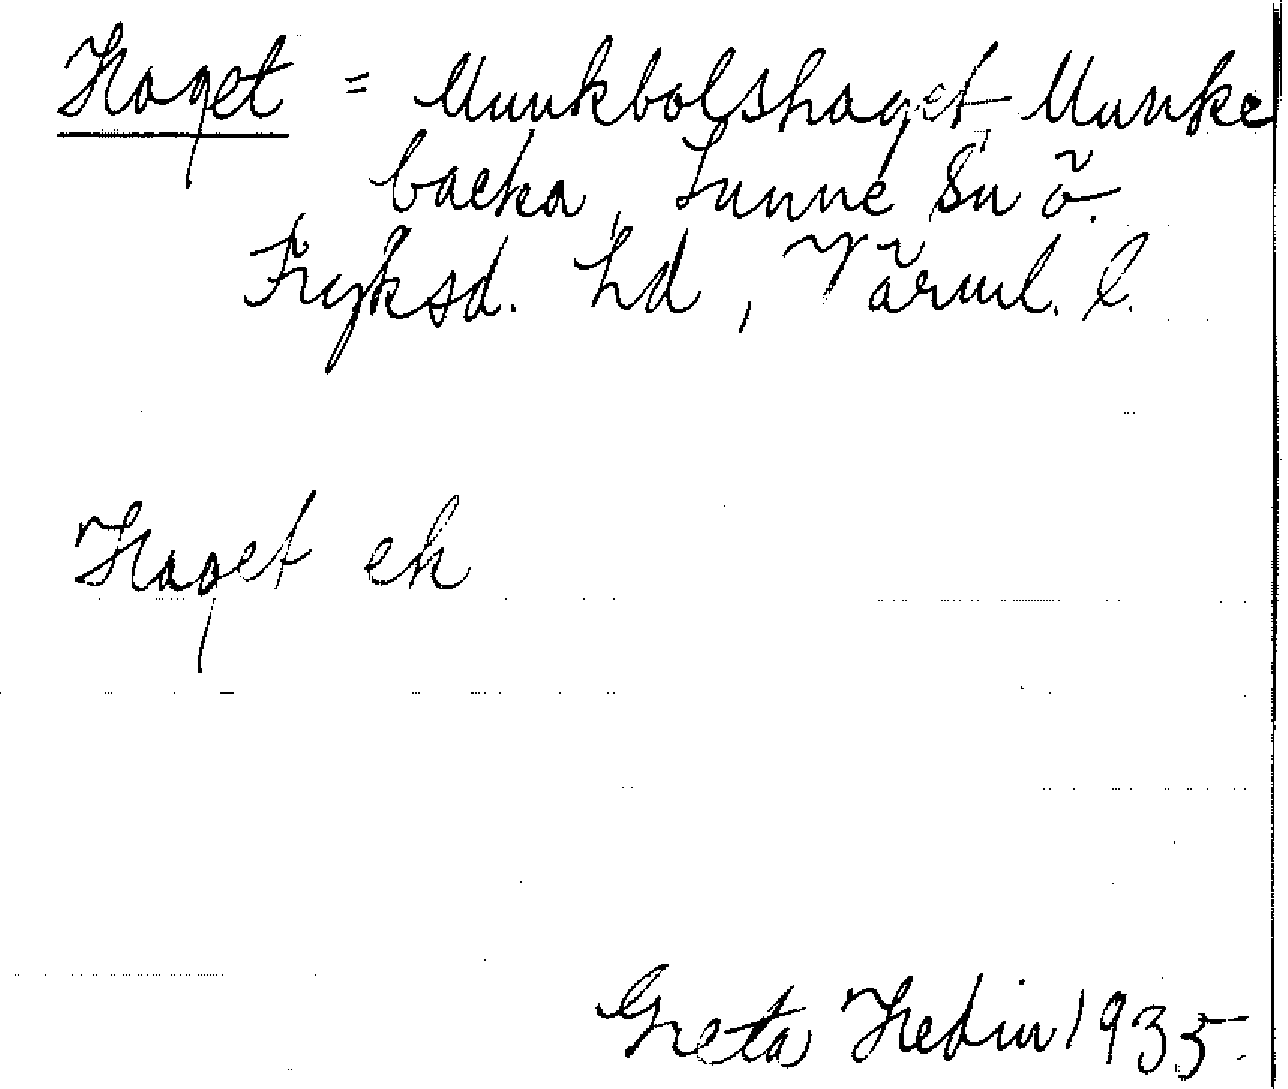 Haget = Munkbolshaget Munke
backa, Sunne Sn ö.
Fryksd. hd, Värml. l.
Haget ek
Greta Hedin 1935.